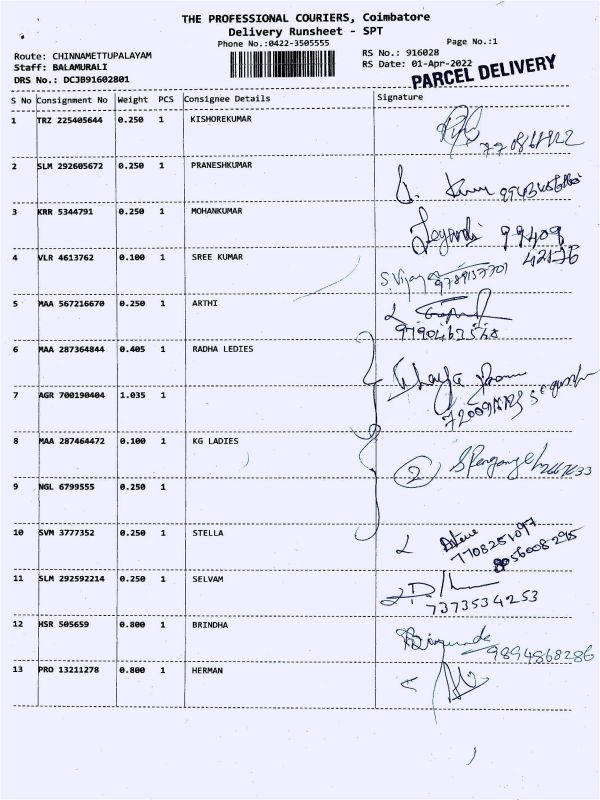 THE PROFESSIONAL COURIERS, Coimbatore
Delivery Runsheet - SPT
Phone No.:0422-3505555
Page No.:1
Route: CHINNAMETTUPALAYAM
RS No.: 916028
Staff: BALAMURALI
RS Date: 01-Apr-2022
DRS No.: DCJB91602801
PARCEL DELIVERY
S No Consignment No Weight PCS Consignee Details Signature
1 TRZ 225405644 0.250 1 KISHOREKUMAR
2 SLM 292605672 0.250 1 PRANESHKUMAR
3 KRR 5344791 0.250 1 MOHANKUMAR
99409
42176
4 VLR 4613762 0.100 1 SREE KUMAR
S. Vijaya 9789137701
5 MAA 567216670 0.250 1 ARTHI
6 MAA 287364844 0.405 1 RADHA LEDIES
7 AGR 700190404 1.035 1
8 MAA 287464472 0.100 1 KG LADIES
2
9 NGL 6799555 0.250 1
10 SVM 3777352 0.250 1 STELLA
7708251097
8056008295
11 SLM 292592214 0.250 1 SELVAM
7373534253
12 HSR 505659 0.800 1 BRINDHA
9894868286
13 PRO 13211278 0.800 1 HERMAN